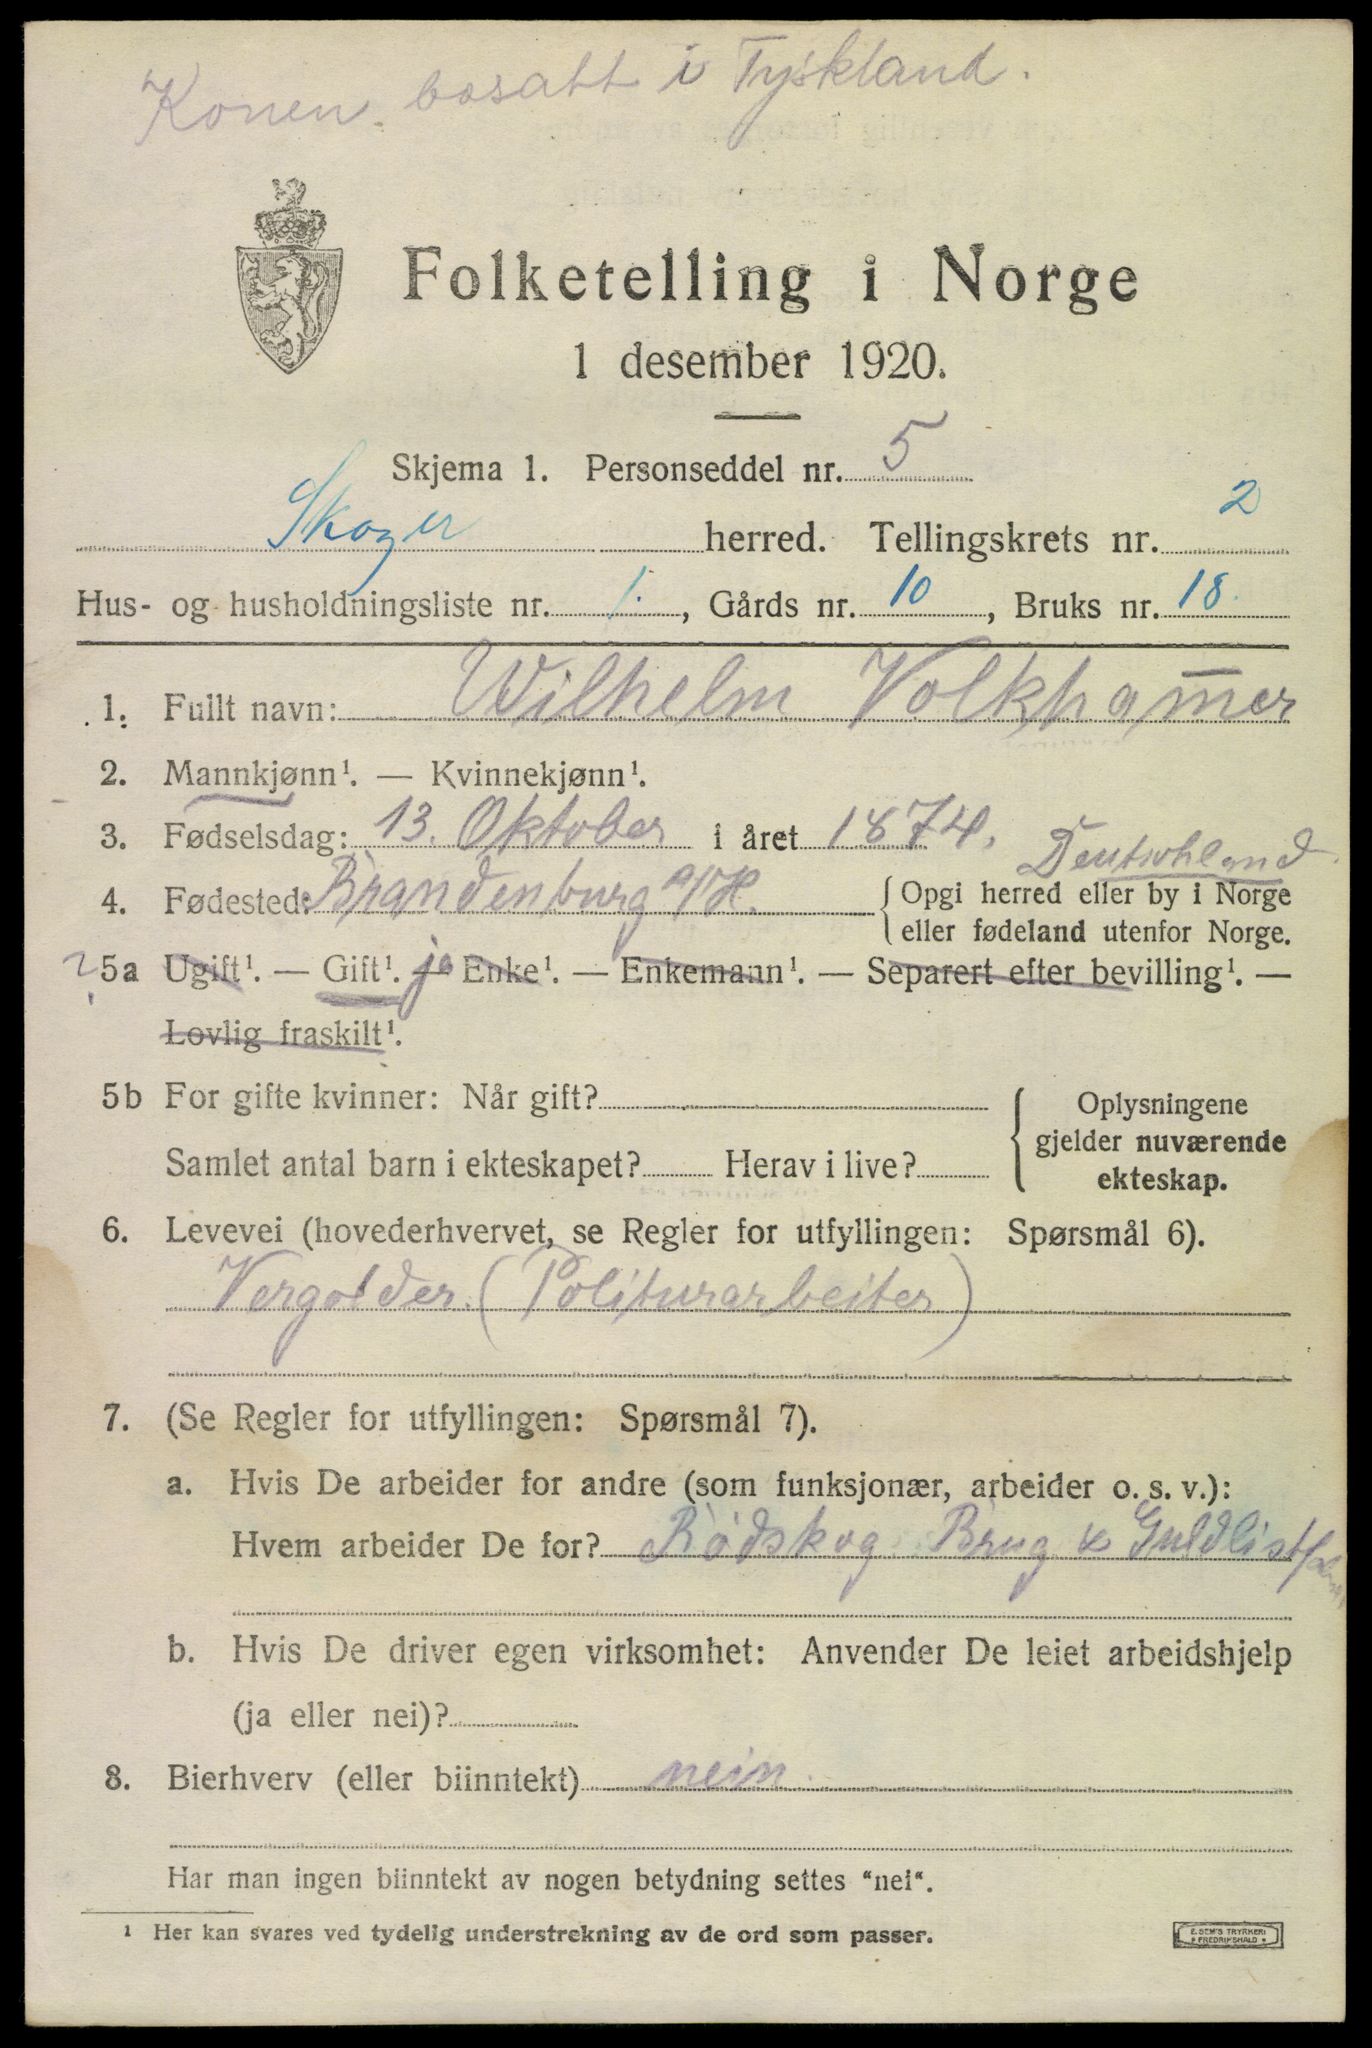 Konen bosatt i Tyskland.
Folketelling i Norge
1 desember 1920.
Skjema 1. Personseddel nr. 5
Skoger herred. Tellingskrets nr. 2
Hus- og husholdningsliste nr. 1., Gårds nr. 10, Bruks nr. 18.
1. Fullt navn: Wilhelm Volkham̅er
2. Mannkjønn¹. — Kvinnekjønn¹.
3. Fødselsdag: 13. Oktober i året 1874.
Deutschland
4. Fødested: Brandenburg a/H. { Opgi herred eller by i Norge
eller fødeland utenfor Norge.
5a Ugift¹. — Gift¹. ja Enke¹. — Enkemann¹. — Separert efter bevilling¹. —
Lovlig fraskilt¹.
5b For gifte kvinner: Når gift? { Oplysningene
gjelder nuværende
Samlet antal barn i ekteskapet? Herav i live?
ekteskap.
6. Levevei (hovederhvervet, se Regler for utfyllingen: Spørsmål 6).
Vergolder. (Politurarbeiter)
7. (Se Regler for utfyllingen: Spørsmål 7).
a. Hvis De arbeider for andre (som funksjonær, arbeider o. s. v.):
Hvem arbeider De for? Rødskog Brug & Guldlist
b. Hvis De driver egen virksomhet: Anvender De leiet arbeidshjelp
(ja eller nei)?
8. Bierhverv (eller biinntekt) nein.
Har man ingen biinntekt av nogen betydning settes "nei".
¹ Her kan svares ved tydelig understrekning av de ord som passer.
E. SEM'S TRYKKERI
* FREDRIKSHALD *